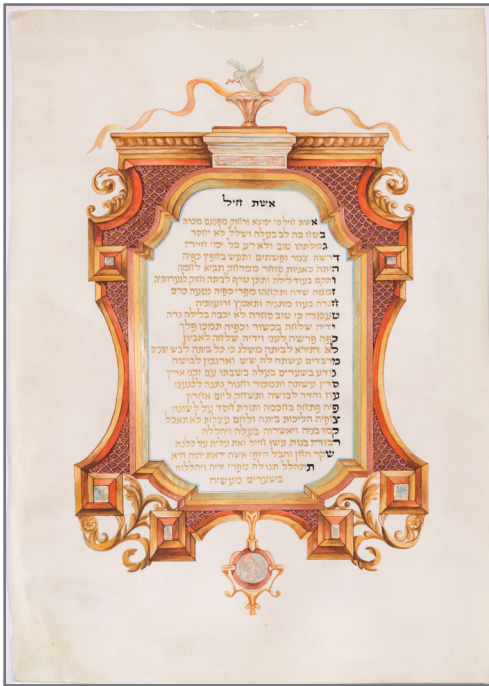 אשת חיל
אשת חיל מי ימצא ורחוק מפנינים מכרה
בטח בה לב בעלה ושלל לא יחסר
גמלתהו טוב ולא רע כל ימי חייה
דרשה צמר ופשתים ותעש בחפץ כפיה
היתה כאניות סוחר ממרחק תביא לחמה
ותקם בעוד לילה ותתן טרף לביתה וחוק לנערותיה
זממה שדה ותקחהו מפרי כפיה נטעה כרם
חגרה בעוז מתניה ותאמץ זרועותיה
טעמה כי טוב סחרה לא יכבה בלילה נרה
ידיה שלחה בכשור וכפיה תמכו פלך
כפה פרשה לעני וידיה שלחה לאביון
לא תירא לביתה משלג כי כל ביתה לבש שנים
מרבדים עשתה לה שש וארגמן לבושה
נודע בשערים בעלה בשבתו עם זקני ארץ
סדין עשתה ותמכור וחגור נתנה לכנעני
עוז והדר לבושה ותשחק ליום אחרון
פיה פתחה בחכמה ותורת חסד על לשונה
צופיה הליכות ביתה ולחם עצלות לא תאכל
קמו בניה ויאשרוה בעלה ויהללה
רבות בנות עשו חיל ואת עלית על כלנה
שקר החן והבל היופי אשה יראת יהוה היא
תתהלל תנו לה מפרי ידיה ויהללוה
בשערים מעשיה